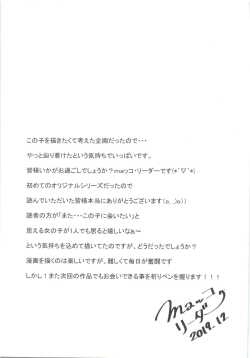 この子を描きたくて考えた企画だったので・・・
やっと辿り着けたという気持ちでいっぱいです。
皆様いかがお過ごしでしょうか？maッコ・リーダーです(*'▽'*)
初めてのオリジナルシリーズだったので
読んでいただいた皆様本当にありがとうございます(o_ _)o))
読者の方が「また・・・この子に会いたい」と
思える女の子が1人でも居ると嬉しいなぁ〜
という気持ちを込めて描いてたのですが、どうだったでしょう？
漫画を描くのは楽しいですが、難しくて毎日が奮闘です
しかし！また次回の作品でもお会いできる事を祈りペンを握ります！！！
maッコ
リーダー
2019.12